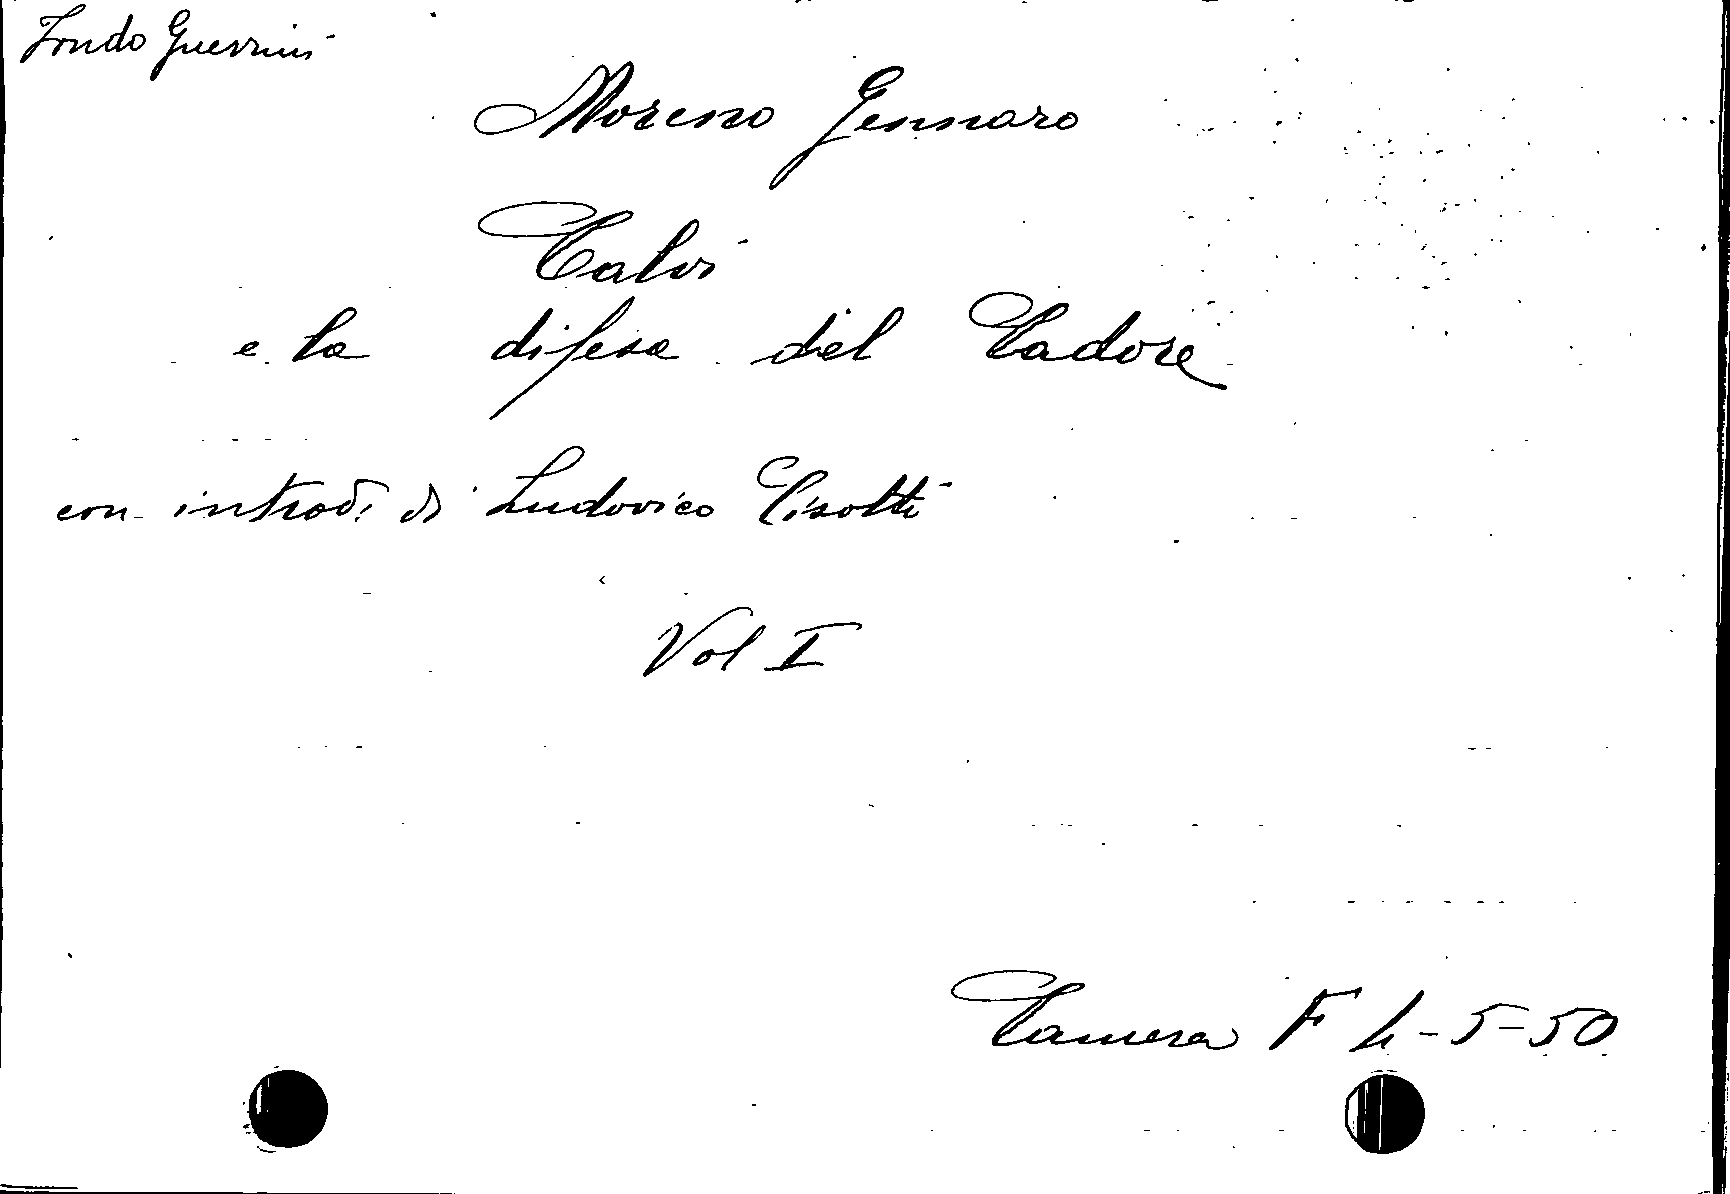 Fondo Guerrini
Moreno Gennaro
Calvi
e la difesa del Cadore
con introd. di Ludovico Cisotti
Vol I
Camera F 4-5-50